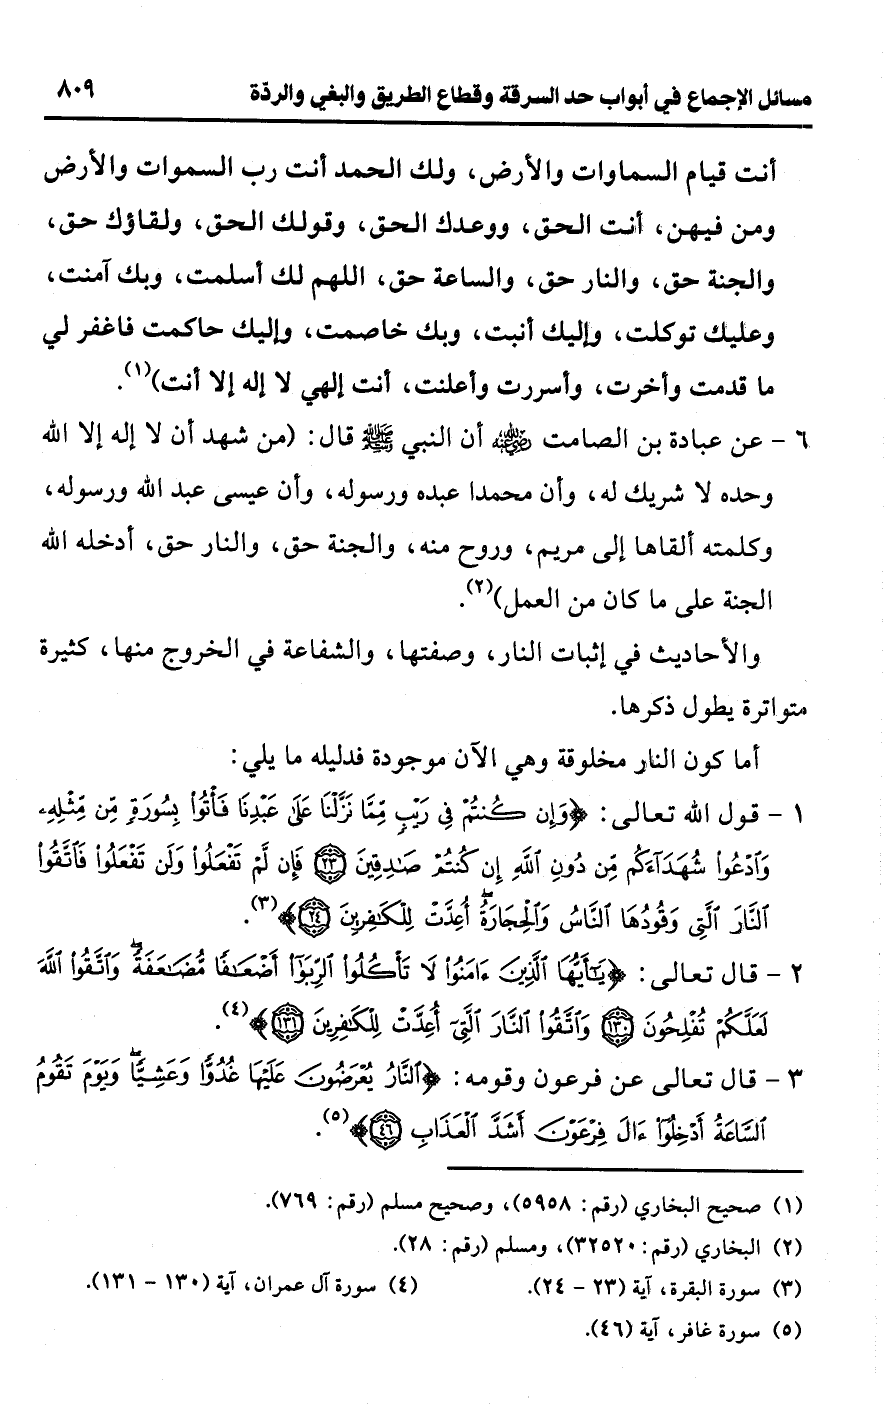 مسائل الإجماع في أبواب حد السرقة وقطاع الطريق والبغي والردّة ٨٠٩
أنت قيام السماوات والأرض، ولك الحمد أنت رب السموات والأرض
ومن فيهن، أنت الحق، ووعدك الحق، وقولك الحق، ولقاؤك حق،
والجنة حق، والنار حق، والساعة حق، اللهم لك أسلمت، وبك آمنت،
وعليك توكلت، وإليك أنبت، وبك خاصمت، وإليك حاكمت فاغفر لي
ما قدمت وأخرت، وأسررت وأعلنت، أنت إلهي لا إله إلا أنت)(١).
٦ - عن عبادة بن الصامت رضي الله عنه أن النبي ﷺ قال: (من شهد أن لا إله إلا الله
وحده لا شريك له، وأن محمدا عبده ورسوله، وأن عيسى عبد الله ورسوله،
وكلمته ألقاها إلى مريم، وروح منه، والجنة حق، والنار حق، أدخله الله
الجنة على ما كان من العمل)(٢).
والأحاديث في إثبات النار، وصفتها، والشفاعة في الخروج منها، كثيرة
متواترة يطول ذكرها.
أما كون النار مخلوقة وهي الآن موجودة فدليله ما يلي:
١ - قول الله تعالى: ﴿وَإِن كُنتُمْ فِي رَيْبٍ مِّمَّا نَزَّلْنَا عَلَىٰ عَبْدِنَا فَأْتُوا۟ بِسُورَةٍ مِّن مِّثْلِهِۦ
وَٱدْعُوا۟ شُهَدَآءَكُم مِّن دُونِ ٱللَّهِ إِن كُنتُمْ صَـٰدِقِينَ ٢٣ فَإِن لَّمْ تَفْعَلُوا۟ وَلَن تَفْعَلُوا۟ فَٱتَّقُوا۟
ٱلنَّارَ ٱلَّتِى وَقُودُهَا ٱلنَّاسُ وَٱلْحِجَارَةُ ۖ أُعِدَّتْ لِلْكَـٰفِرِينَ ٢٤﴾(٣).
٢ - قال تعالى: ﴿يَـٰٓأَيُّهَا ٱلَّذِينَ ءَامَنُوا۟ لَا تَأْكُلُوا۟ ٱلرِّبَوٰٓا۟ أَضْعَـٰفًا مُّضَـٰعَفَةً ۖ وَٱتَّقُوا۟ ٱللَّهَ
لَعَلَّكُمْ تُفْلِحُونَ ١٣٠ وَٱتَّقُوا۟ ٱلنَّارَ ٱلَّتِىٓ أُعِدَّتْ لِلْكَـٰفِرِينَ ١٣١﴾(٤).
٣ - قال تعالى عن فرعون وقومه: ﴿ٱلنَّارُ يُعْرَضُونَ عَلَيْهَا غُدُوًّا وَعَشِيًّا ۖ وَيَوْمَ تَقُومُ
ٱلسَّاعَةُ أَدْخِلُوٓا۟ ءَالَ فِرْعَوْنَ أَشَدَّ ٱلْعَذَابِ ٤٦﴾(٥).
(١) صحيح البخاري (رقم: ٥٩٥٨)، وصحيح مسلم (رقم: ٧٦٩).
(٢) البخاري (رقم: ٣٢٥٢٠)، ومسلم (رقم: ٢٨).
(٣) سورة البقرة، آية (٢٣ - ٢٤). (٤) سورة آل عمران، آية (١٣٠ - ١٣١).
(٥) سورة غافر، آية (٤٦).